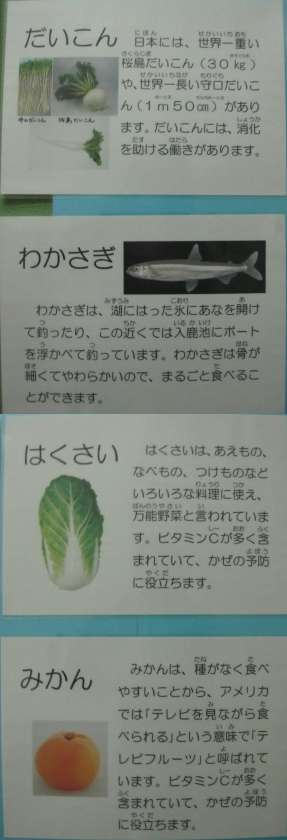 だいこん
日本には、世界一重い
桜島だいこん(30kg)
や、世界一長い守口だいこ
ん(1m50㎝)があり
ます。だいこんには、消化
を助ける働きがあります。
守口だいこん
桜島だいこん
わかさぎ
わかさぎは、湖にはった氷にあなを開け
て釣ったり、この近くでは入鹿池にボート
を浮かべて釣っています。わかさぎは骨が
細くてやわらかいので、まるごと食べるこ
とができます。
はくさい
はくさいは、あえもの、
なべもの、つけものなど
いろいろな料理に使え、
万能野菜と言われていま
す。ビタミンCが多く含
まれていて、かぜの予防
に役立ちます。
みかん
みかんは、種がなく食べ
やすいことから、アメリカ
では「テレビを見ながら食
べられる」という意味で「テ
レビフルーツ」と呼ばれて
います。ビタミンCが多く
含まれていて、かぜの予防
に役立ちます。